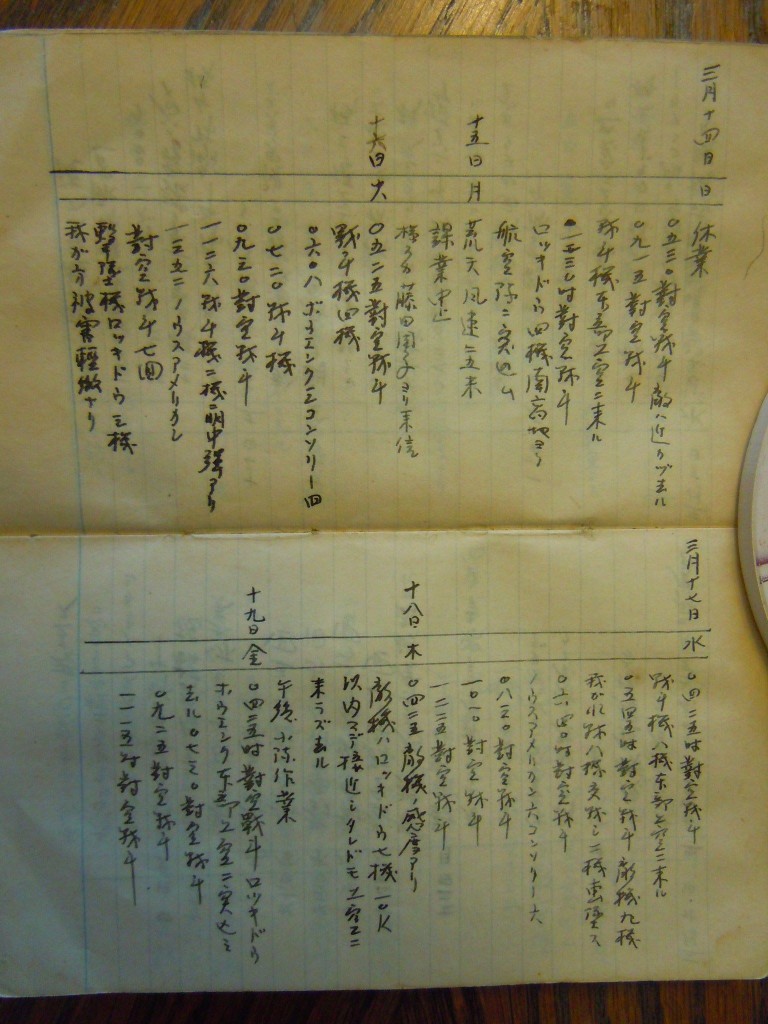 三月十四日 日
休業
〇五三〇對空戰斗 敵ハ近ヅカズ去ル
〇九一五對空戰斗
戰斗機東部上空ニ來ル
一三三〇時對空戰斗
ロッキード四機南高地ヨリ
航空隊ニ突込ム
十五日 月
荒天風速二五米
課業中止
藤田周子ヨリ來信
十六日 火
〇五二五對空戰斗
戰斗機四機
〇六〇八 ボウエング三コンソリー四
〇七二〇 戰斗機
〇九三〇對空戰斗
一一二六戰斗機二機ニ命中弾アリ
一三五二ノウスアメリカン
對空戰斗七回
擊墜機ロッキドウ三機
我ガ方被害輕微ナリ
三月十七日 水
〇四二五時對空戰斗
戰斗機八機東部上空ニ來ル
〇五四五時對空戰斗 敵機九機
我ガ零戰八機交戰シ二機擊墜ス
〇六四〇時對空戰斗
ノウスアメリカン六コンソリー六
〇八三〇對空戰斗
一〇一〇 對空戰斗
一二二五對空戰斗
十八日 木
〇四二五 敵機ノ感度アリ
敵機ハロッキドウ七機一〇K
以內マデ接近シタレドモ上空ニ
來ラズ去ル
午後小隊作業
十九日 金
〇四二五時對空戰斗ロッキドウ
ボウエング東部上空ニ突込ミ
去ル〇七三〇對空戰斗
〇九二五對空戰斗
一一一五時對空戰斗